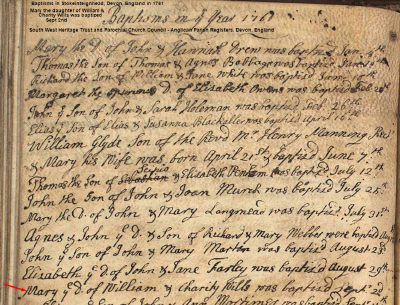 Baptisms in Stokeinteignhead, Devon, England in 1761
Mary the daughter of William &
Charity Wills was baptised
Sept 2nd
South West Heritage Trust and Parochial Church Council - Anglican Parish Registers, Devon, England
Baptisms in ye Year 1761
Mary the d. of John & Hannah Drew was baptized Jan.
Thomas the Son of Thomas & Agnes Babbage was baptized
Richard the Son of William & Jane White
Margaret the d. of Elizabeth Owens was baptized Feb
John ye Son of John & Sarah Holoman was baptized Feb. 26th
Elias ye Son of Elias & Susanna Blackaller was baptized April 16th
William Glyde Son of the Revd Mr. Henry Manning
& Mary his Wife was born April 21st & baptized June 7th
Thomas the Son of & Elizabeth was baptized July 12th
John the Son of John & Joan Murch was baptized July 25th
Mary the d. of John & Mary Langmead was baptized July 31st
Agnes & John ye d. & Son of Richard & Mary were baptized
John ye Son of John & Mary Martin was baptized August 23d
Elizabeth ye d. of John & Jane Farley was baptized August 29th
Mary ye d. of William & Charity Wills was baptized Sept. 2d